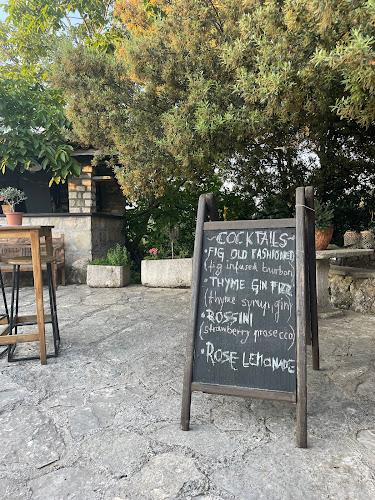 ~COCKTAILS~
•FIG OLD FASHIONED
(fig infused bourbon)
•THYME GIN FIZZ
(thyme syrup, gin)
•ROSSINI
(strawberry, prosecco)
•ROSE LEMONADE